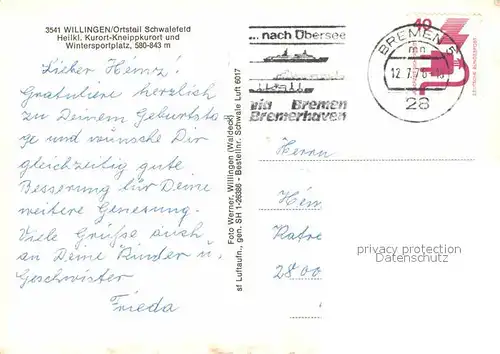 3541 WILLINGEN/Ortsteil Schwalefeld
Heilkl. Kurort-Kneippkurort und
Wintersportplatz, 580-843 m
Lieber Heinz!
Gratuliere herzlich
zu Deinem Geburtsta
ge und wünsche Dir
gleichzeitig gute
Besserung für Deine
weitere Genesung.
Viele Grüße auch
an Deine Kinder u.
Geschwister
Frieda
Foto Werner, Willingen (Waldeck)
sf Luftaufn., gen. SH 1-26386 - Bestellnr. Schwale Luft 6017
... nach Übersee
via Bremen
Bremerhaven
BREMEN 5
mn
12.7.7
28
40
Herrn
Hein
Ratre
2800
privacy protection
Datenschutz